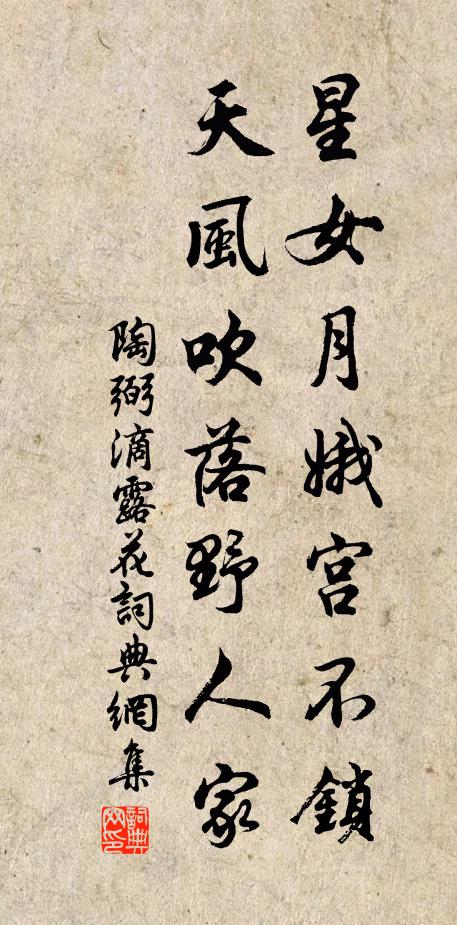 星女月娥宫不鎖
天風吹落野人家
陶弼滴露花詞典網集
詞典
网印